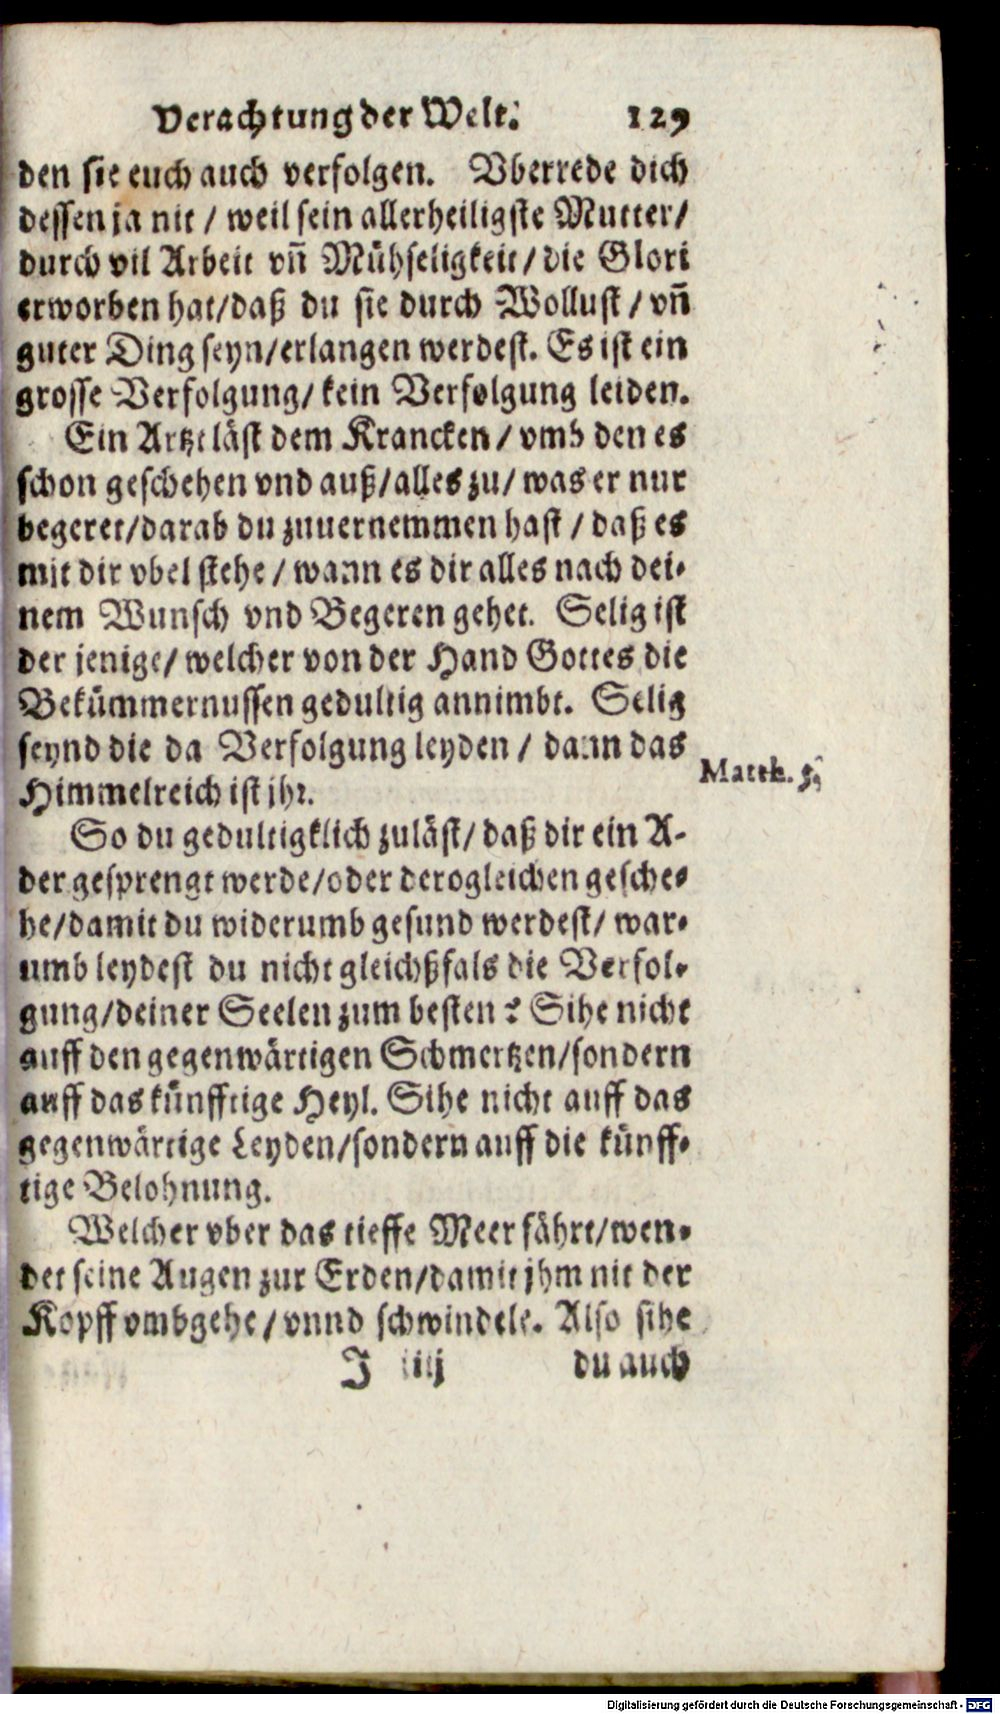 Verachtung der Welt. 129
den sie euch auch verfolgen. Vberrede dich
dessen ja nit / weil sein allerheiligste Mutter/
durch vil Arbeit vñ Mühseligkeit/die Glori
erworben hat/daß du sie durch Wollust / vñ
guter Ding seyn/erlangen werdest. Es ist ein
grosse Verfolgung/kein Verfolgung leiden.
Ein Artzt läst dem Krancken / vmb den es
schon geschehen vnd auß/alles zu/ was er nur
begeret/darab du zuuernemmen hast / daß es
mit dir vbel stehe / wann es dir alles nach dei-
nem Wunsch vnd Begeren gehet. Selig ist
der jenige/ welcher von der Hand Gottes die
Bekümmernussen gedultig annimbt. Selig
seynd die da Verfolgung leyden / dann das
Himmelreich ist jhr.
Matth. 5.
So du gedultigklich zuläst/ daß dir ein A-
der gesprengt werde/oder derogleichen gesche-
he/damit du widerumb gesund werdest/ war-
umb leydest du nicht gleichßfals die Verfol-
gung/deiner Seelen zum besten? Sihe nicht
auff den gegenwärtigen Schmertzen/sondern
auff das künfftige Heyl. Sihe nicht auff das
gegenwärtige Leyden/sondern auff die künff-
tige Belohnung.
Welcher vber das tieffe Meer fährt/wen-
det seine Augen zur Erden/damit jhm nit der
Kopff vmbgehe / vnnd schwindele. Also sihe
J iiij du auch
Digitalisierung gefördert durch die Deutsche Forschungsgemeinschaft - DFG